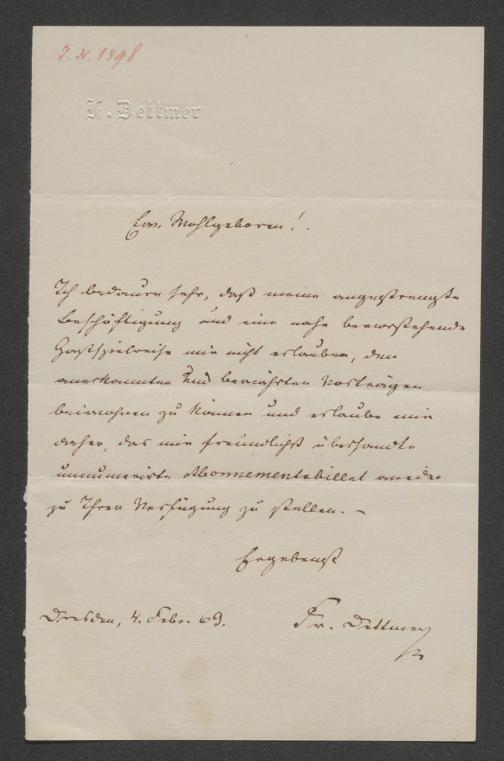 J. N. 1498
F. Dettmer
Ew. Wohlgeboren!
Ich bedaure sehr, daß meine angestrengte
Beschäftigung und eine nahe bevorstehende
Gastspielreise mir nicht erlauben, den
anerkannten und bewährten Vorträgen
beiwohnen zu können und erlaube mir
daher, das mir freundlichst übersandte
unnumerirte Abonnementsbillet wieder
zu Ihrer Verfügung zu stellen. –
Ergebenst
Dresden, 4. Febr. 69. Fr. Dettmer